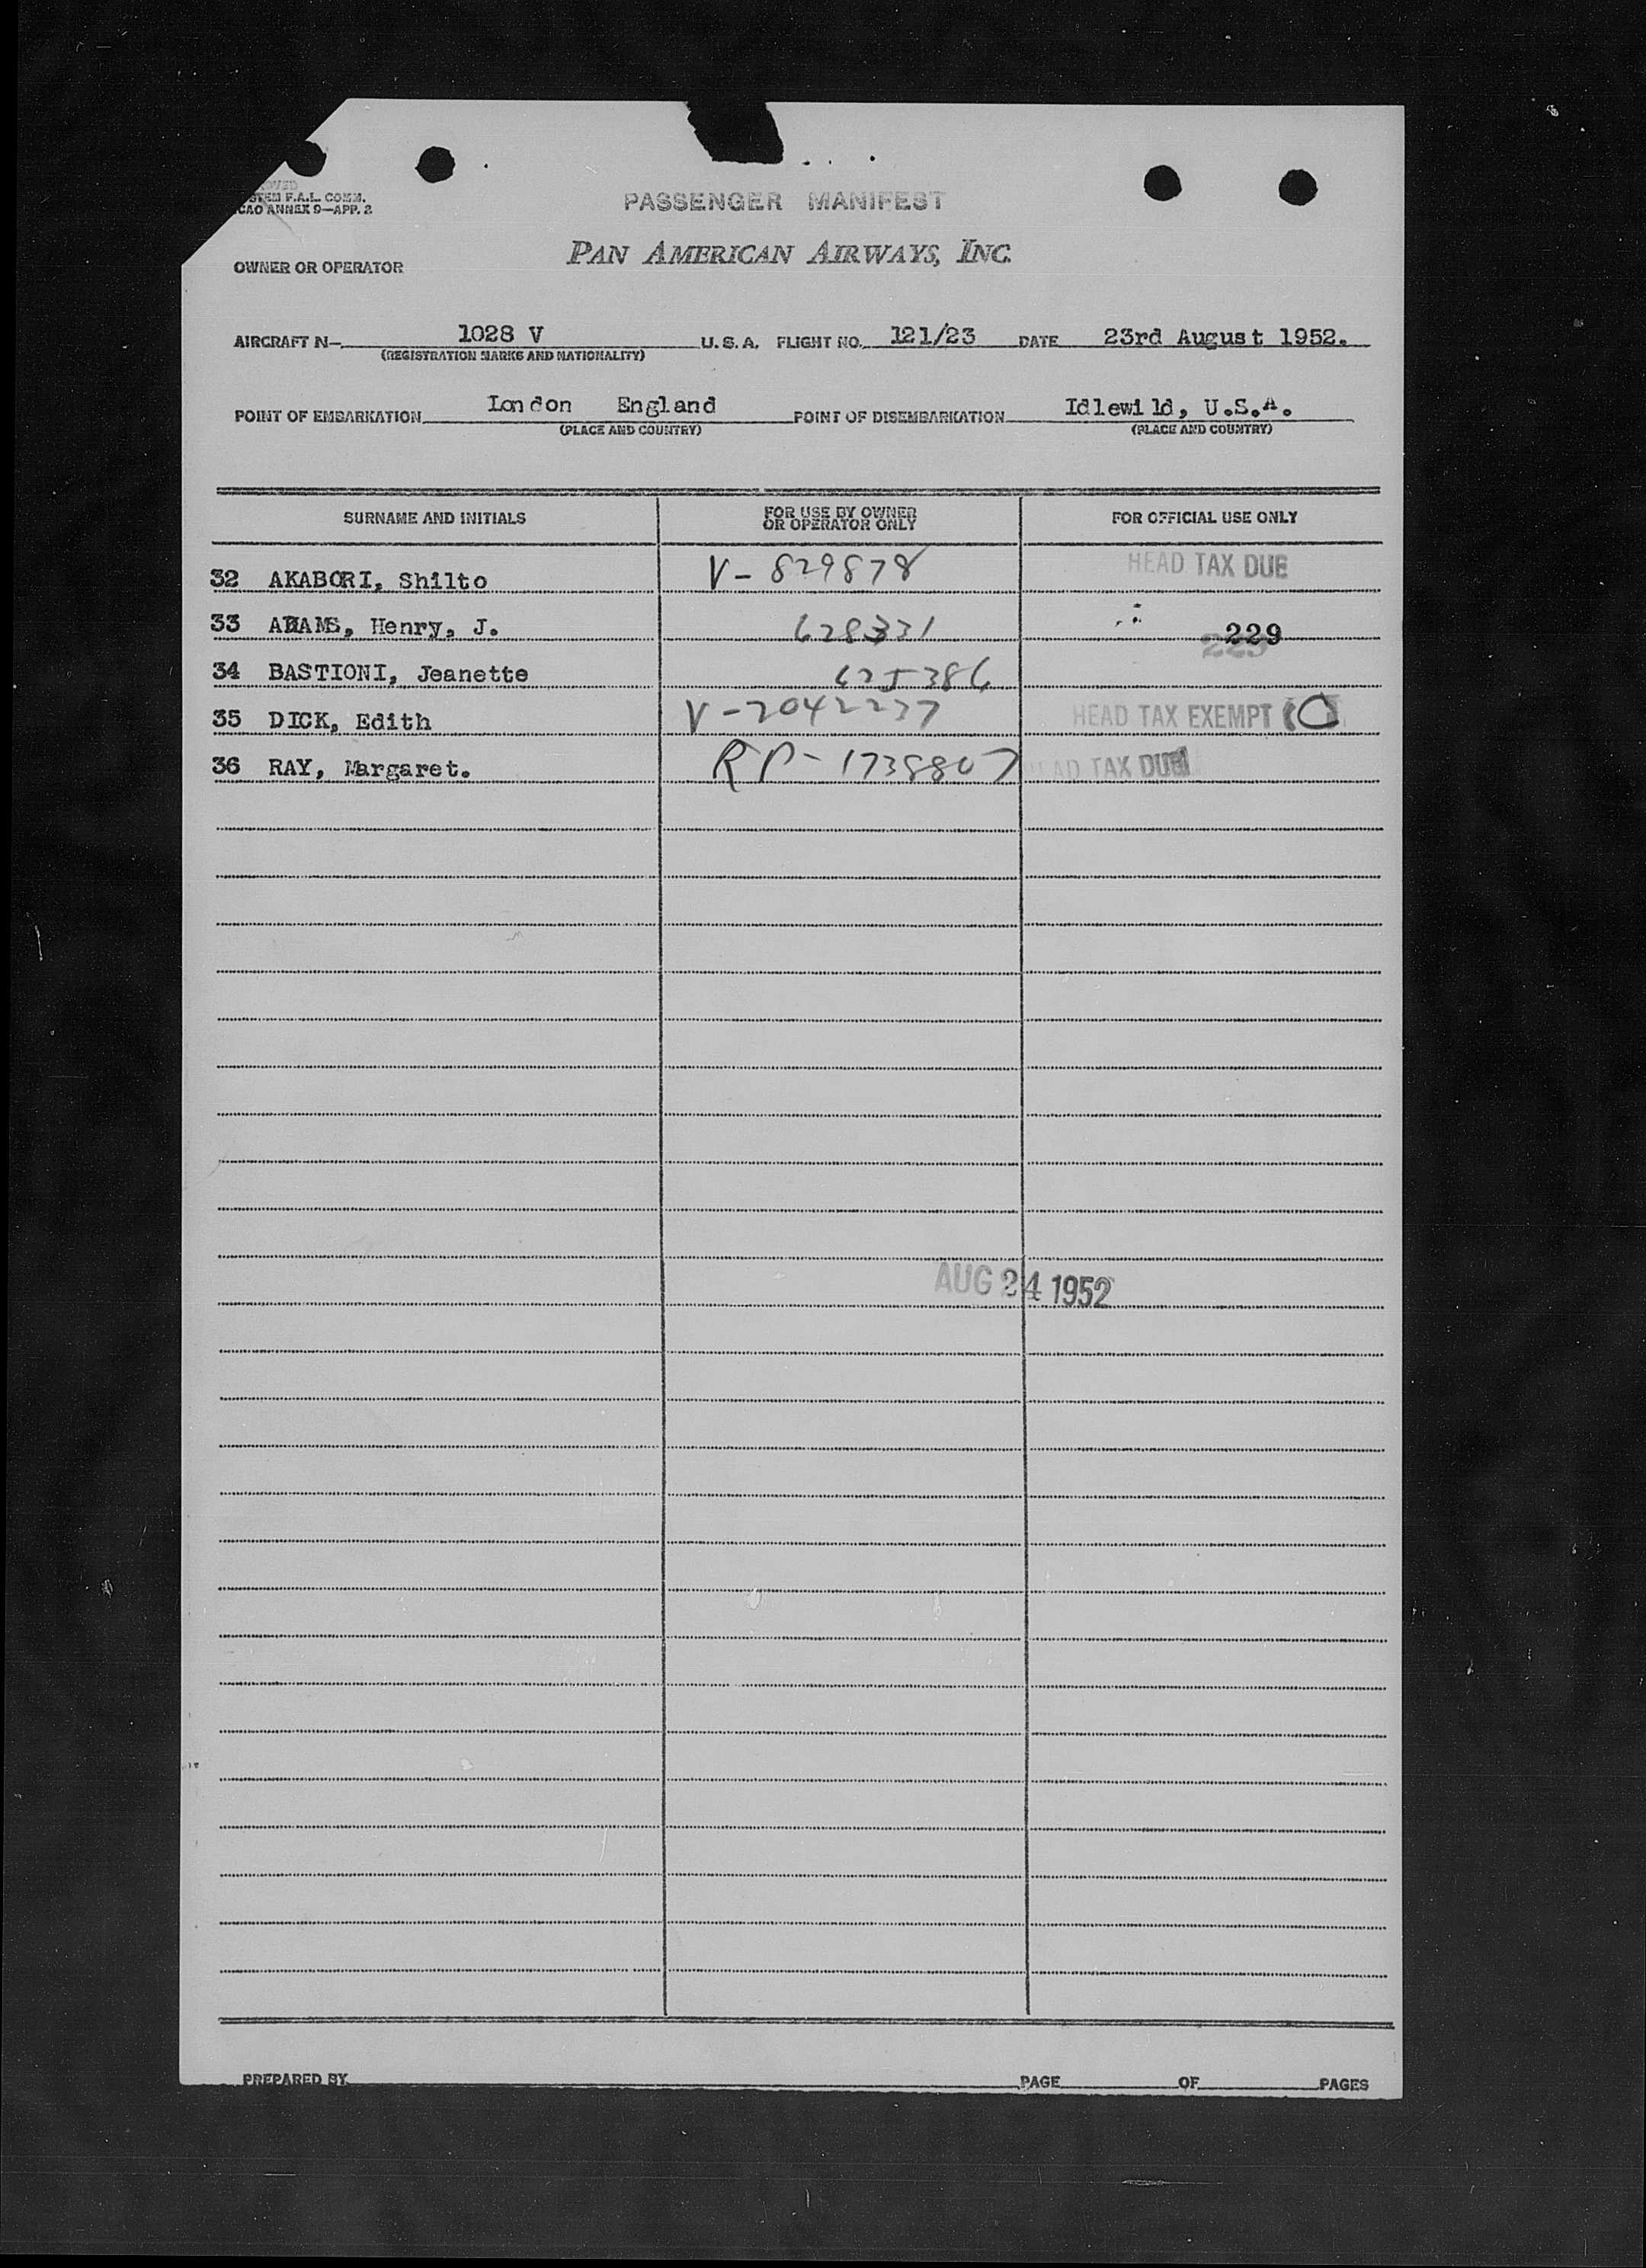 PASSENGER MANIFEST
F.A.L. COMM.
ANNEX 9—APP. 2
OWNER OR OPERATOR PAN AMERICAN AIRWAYS, INC.
AIRCRAFT N— 1028 V U. S. A. FLIGHT NO. 121/23 DATE 23rd August 1952.
(REGISTRATION MARKS AND NATIONALITY)
POINT OF EMBARKATION London England POINT OF DISEMBARKATION Idlewild, U.S.A.
(PLACE AND COUNTRY) (PLACE AND COUNTRY)
SURNAME AND INITIALS FOR USE BY OWNER OR OPERATOR ONLY FOR OFFICIAL USE ONLY
32 AKABORI, Shilto V-829878 HEAD TAX DUE
33 ADAMS, Henry, J. 628331 229
34 BASTIONI, Jeanette 625386
35 DICK, Edith V-2042237 HEAD TAX EXEMPT
36 RAY, Margaret. RP-1738807 HEAD TAX DUE
AUG 24 1952
PREPARED BY PAGE OF PAGES